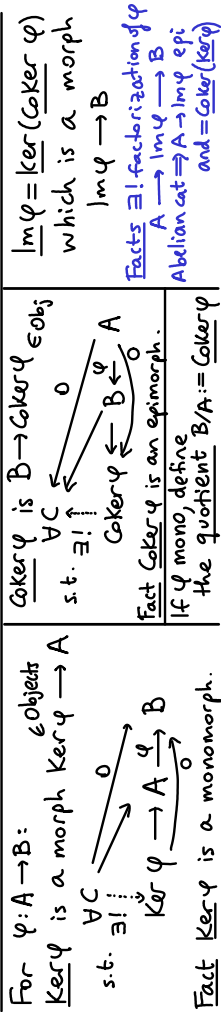 For φ: A → B:
∈ Objects
Ker φ is a morph Ker φ → A
s.t.
∀C
∃!
0
Ker φ → A →φ B
0
Fact Ker φ is a monomorph.
Coker φ is B → Coker φ
∈ Obj
∀C
s.t. ∃!
0
Coker φ ← B ←φ A
0
Fact Coker φ is an epimorph.
If φ mono, define
the quotient B/A := Coker φ
Im φ = Ker(Coker φ)
which is a morph
Im φ → B
Facts ∃! factorization of φ
A → Im φ → B
Abelian cat ⇒ A → Im φ epi
and = Coker(Ker φ)